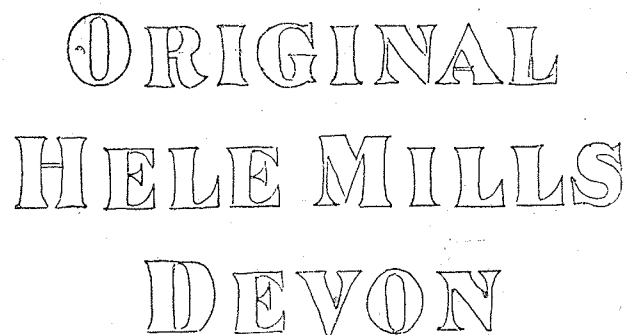 ORIGINAL
HELE MILLS
DEVON